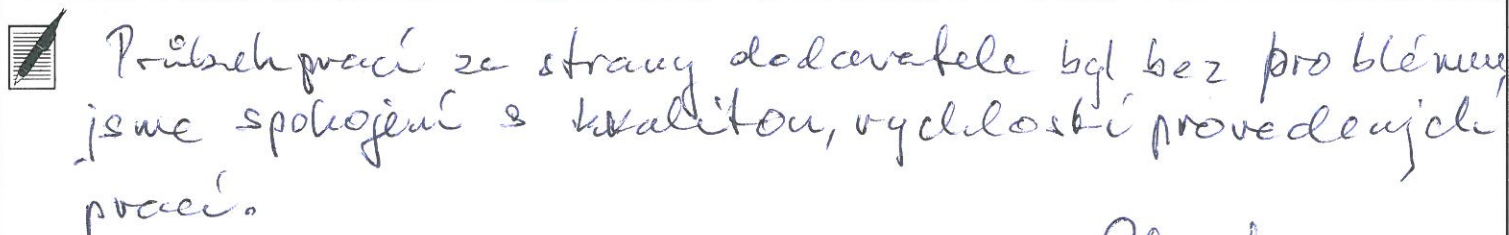 Průběh prací ze strany dodavatele byl bez problémů,
jsme spokojeni s kvalitou, rychlostí provedených
prací.